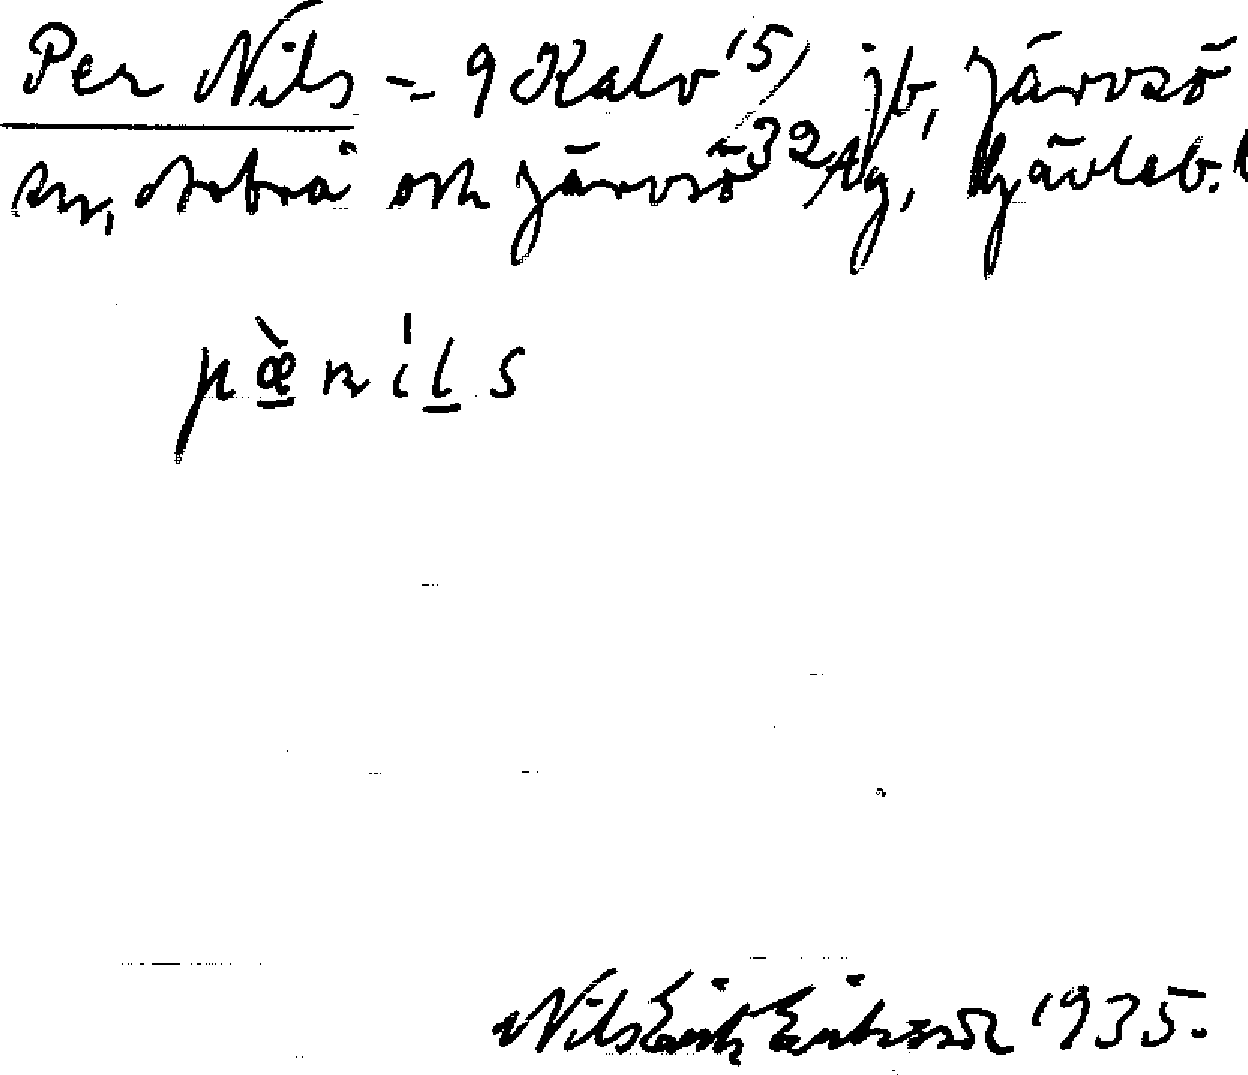 Per Nils = 9 Kalv 15/ jb, Järvsö
sn, Arbrå och Järvsö 32/ tg, Gävleb. l
pæ̀nils
Nils Erik Eriksson 1935.